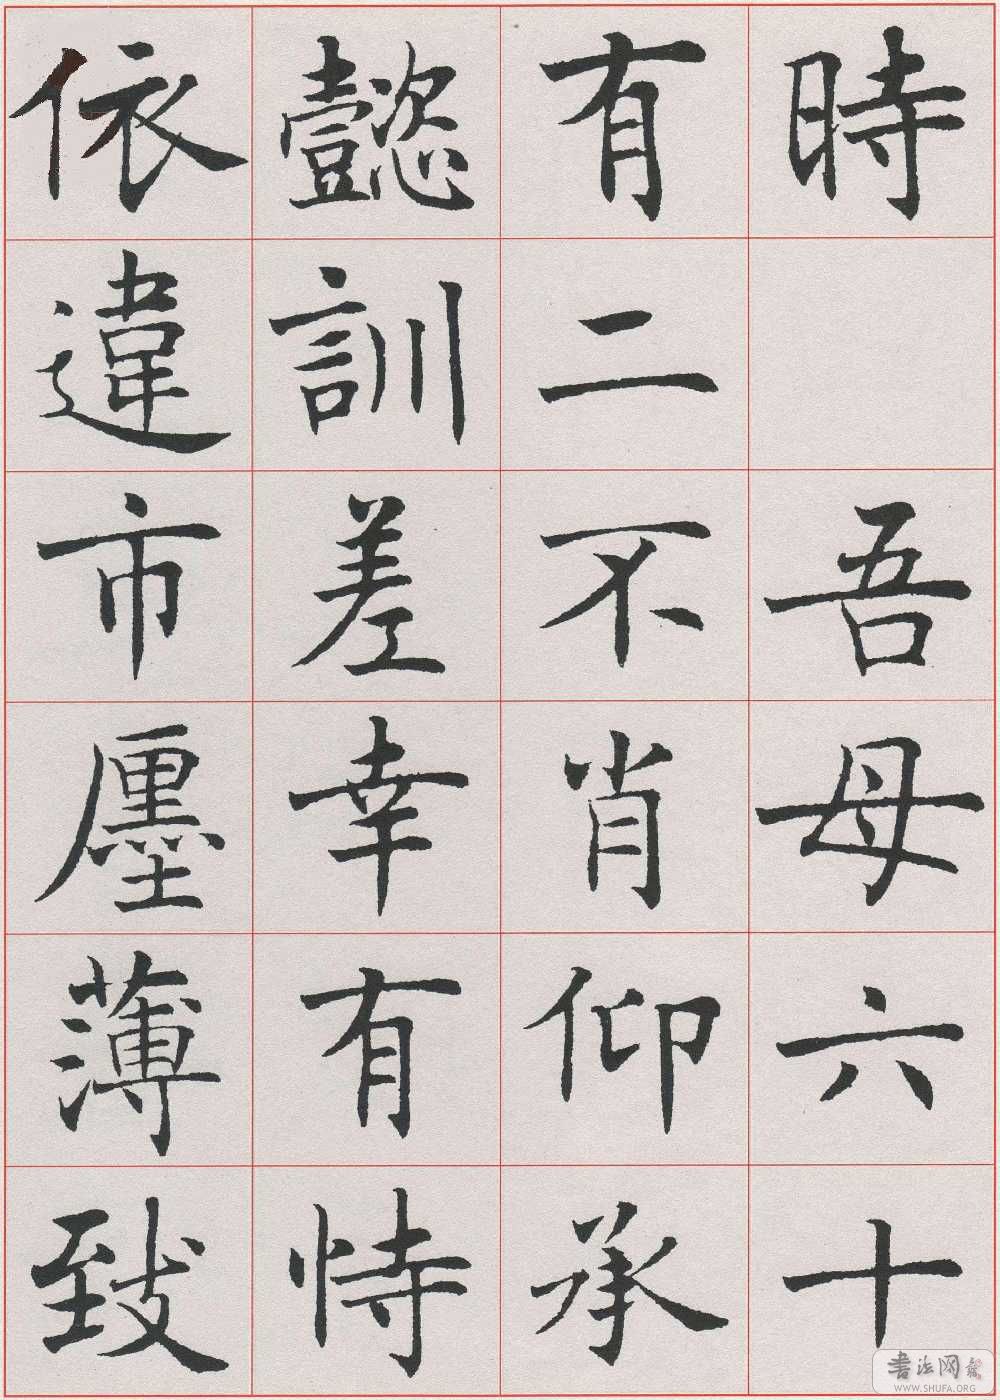 時　吾母六十
有二不肖仰承
懿訓差幸有恃
依違市廛薄致
書法网
WWW.SHUFA.ORG